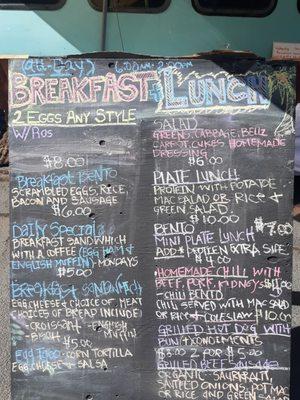 BREAKFAST LUNCH
6:00AM - 2:00PM
BREAKFAST LUNCH
2 EGGS ANY STYLE
$8.00
Breakfast Bento
SCRAMBLED EGGS, RICE,
BACON AND SAUSAGE
$6.00
Daily Special
BREAKFAST SANDWHICH
WITH A COFFEE (EGG HAM
ENGLISH MUFFIN) MONDAYS
$5.00
Breakfast Sandwhich
EGG CHEESE & CHOICE OF MEAT
CHOICES OF BREAD INCLUDE)
- CROISSANT - ENGLISH
MUFFIN
$5.00
Egg Taco - CORN TORTILLA
EGG, CHEESE & SALSA
SALAD
GREENS, CABBAGE, BELL
CARROT, CUKES HOMEMADE
DRESSING
$6.00
PLATE LUNCH
PROTEIN WITH POTATOE
MAC SALAD OR RICE &
GREEN SALAD
$10.00
BENTO $7.00
MINI PLATE LUNCH
ADD PROTEIN EXTRA SIDE
$4.00
HOMEMADE CHILI WITH
BEEF, PORK, KIDNEYS
- CHILI BENTO
CHILI SERVED WITH MAC SALAD
OR RICE & COLESLAW $10.00
GRILLED HOT DOG WITH
BUN & CONDIMENTS
$3.00 2 FOR $5.00
GRILLED BEEF SAUSAGE
ORGANIC SAURKRAUT
SAUTEED ONIONS, POT MAC
OR RICE AND GREEN SALAD